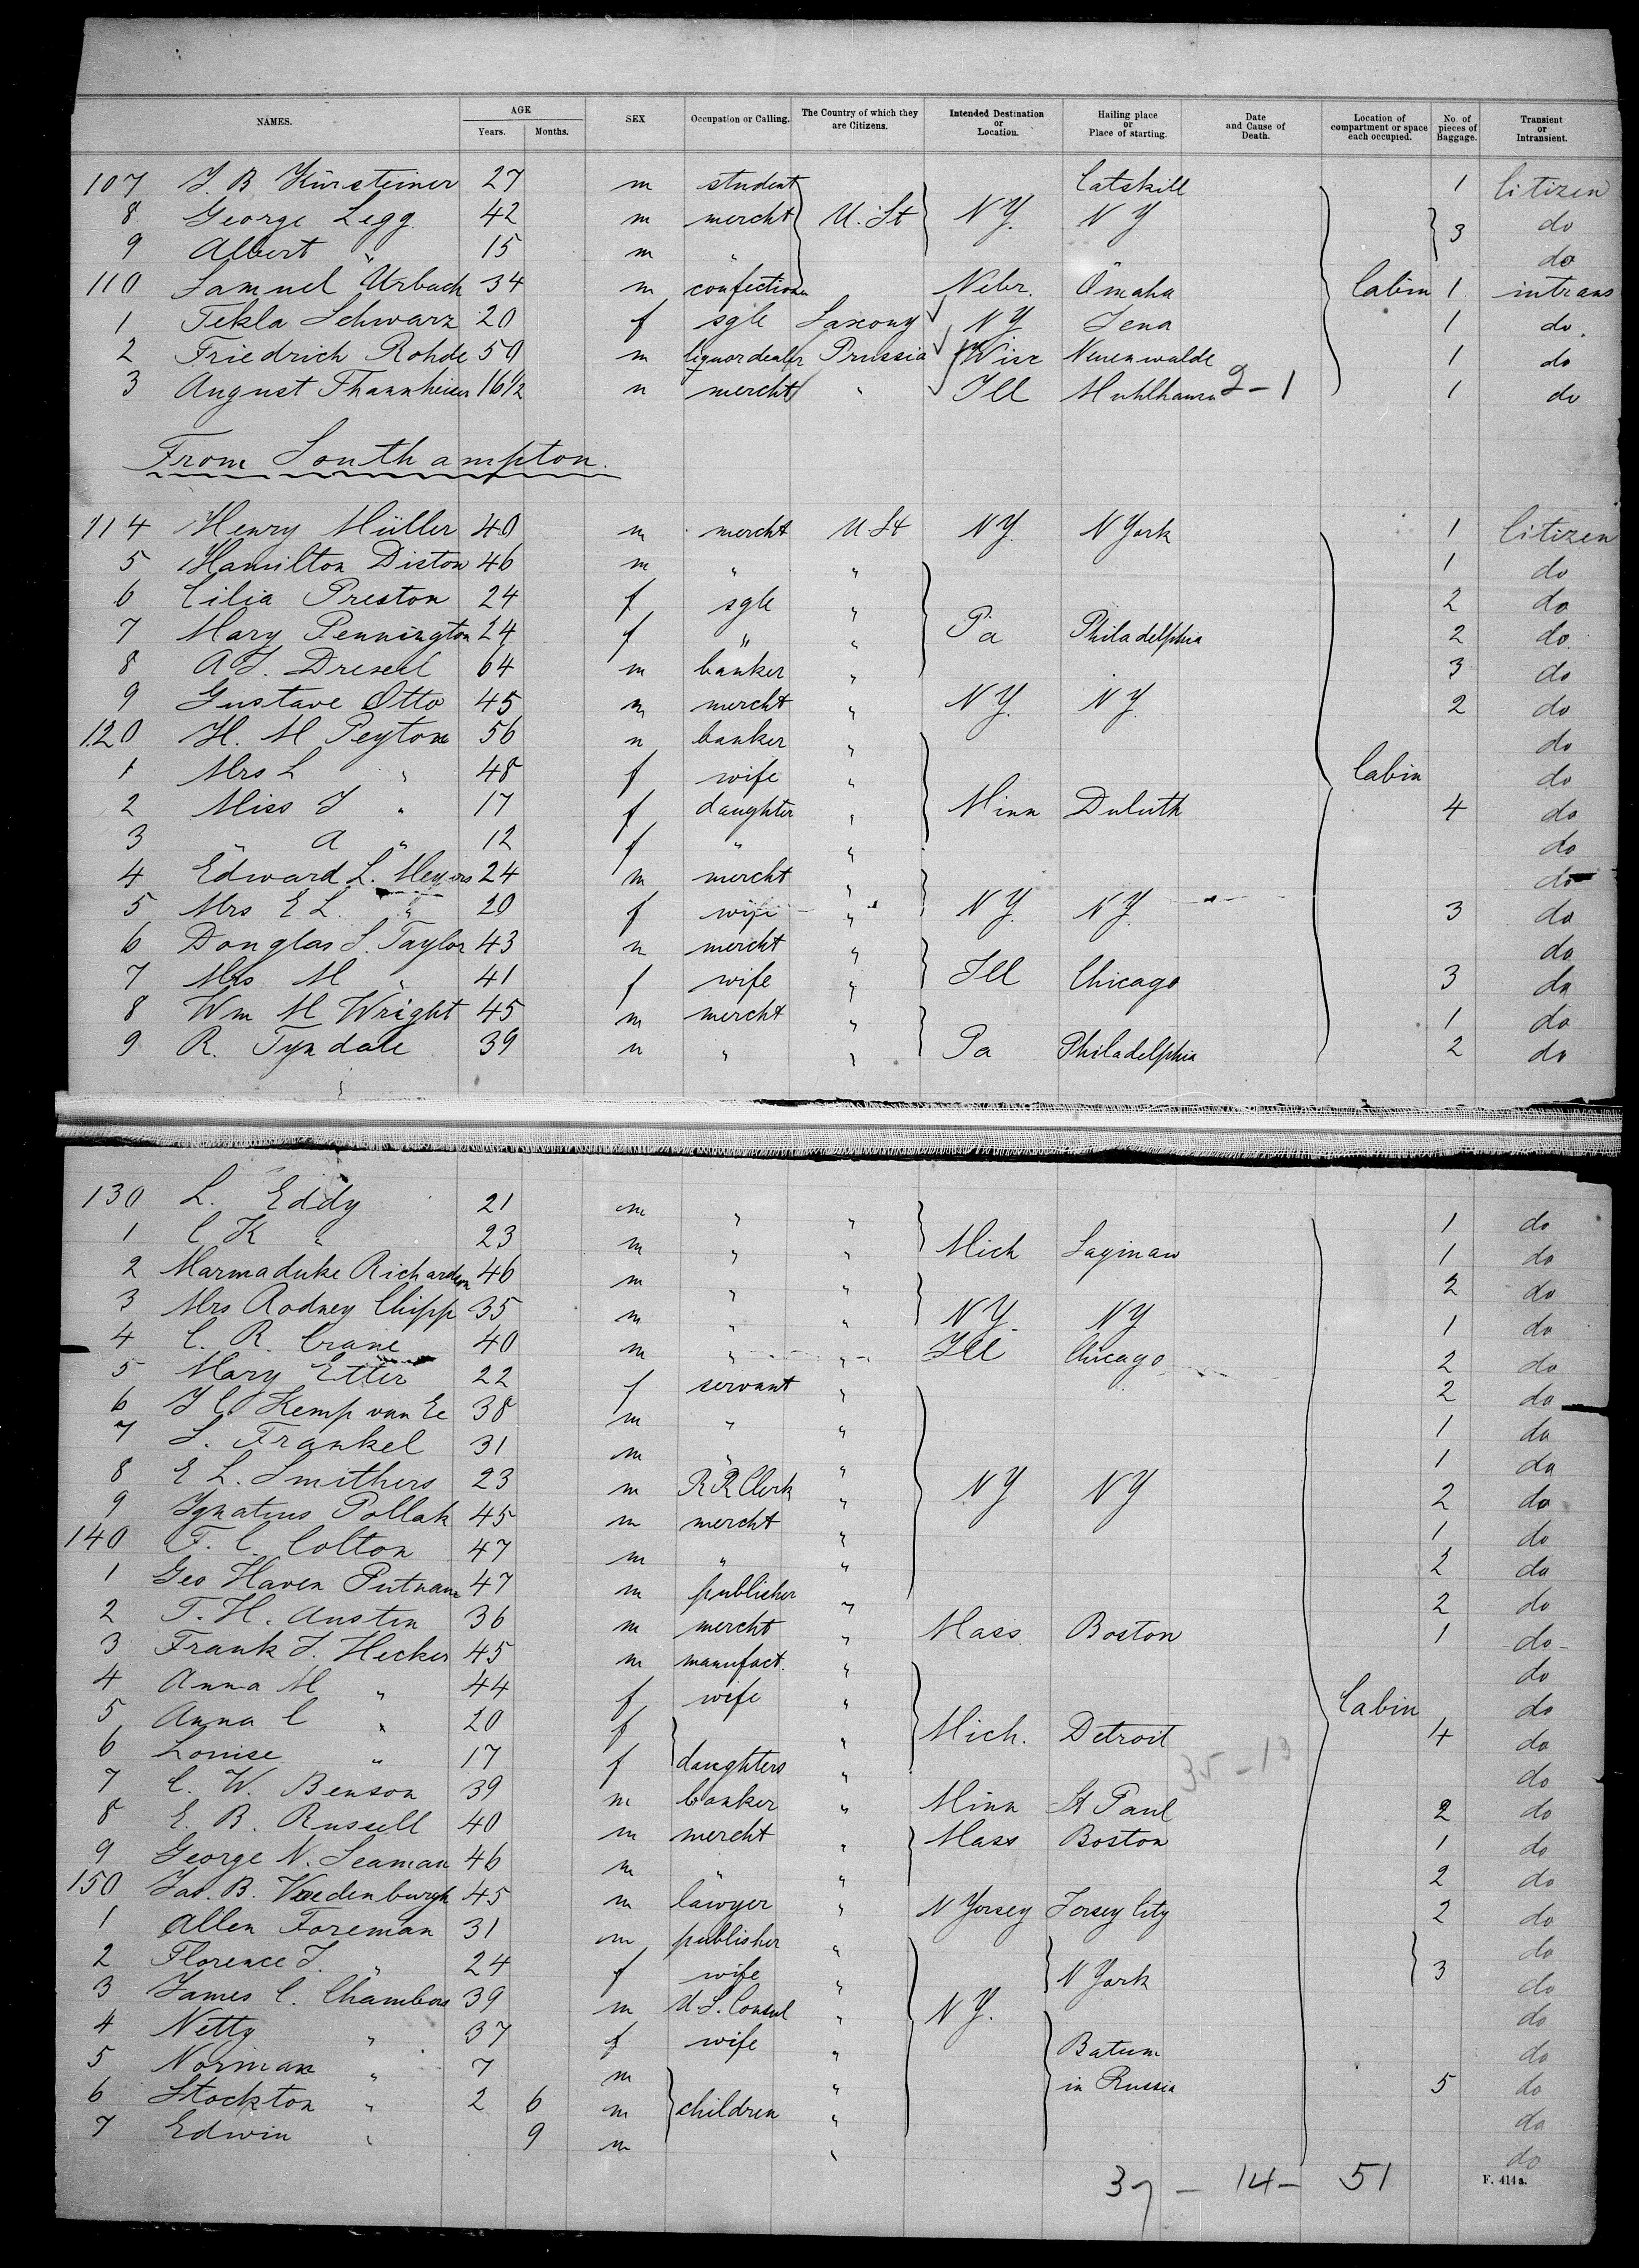 NAMES. AGE Years. Months. SEX Occupation or Calling. The Country of which they are Citizens. Intended Destination or Location. Hailing place or Place of starting. Date and Cause of Death. Location of compartment or space each occupied. No. of pieces of Baggage. Transient or Intransient.
107 J. B Kürsteiner 27 m student Catskill 1 Citizen
8 George Legg 42 m mercht U. St N Y. N Y 3 do
9 Albert " 15 m " do
110 Samuel Urbach 34 m confection Nebr. Omaha Cabin 1 intrans
1 Tekla Schwarz 20 f sgle Saxony N Y Jena 1 do.
2 Friedrich Rohde 50 m liquor dealer Prussia Wisc Neuenwalde 1 do
3 August Thannheiser 16 1/2 m mercht " Ill Muhlhausn 2-1 1 do
From Southampton.
114 Henry Müller 40 m mercht U. St N Y. N York 1 Citizen
5 Hamilton Diston 46 m " " 1 do
6 Cilia Preston 24 f sgle " 2 do
7 Mary Pennington 24 f " " Pa Philadelphia 2 do.
8 A J. Drexel 64 m banker " 3 do
9 Gustave Otto 45 m mercht " N Y. N Y. 2 do
120 H. M Peyton 56 m banker " do
1 Mrs L " 48 f wife " Cabin do
2 Miss J " 17 f daughter " Minn Duluth 4 do
3 " A " 12 f " " do
4 Edward L. Meyers 24 m mercht " do
5 Mrs E L. " 20 f wife " N Y. N Y. 3 do
6 Douglas S. Taylor 43 m mercht " do
7 Mrs M " 41 f wife " Ill Chicago 3 do
8 Wm M Wright 45 m mercht " 1 do
9 R. Tyndale 39 m " " Pa Philadelphia 2 do
130 L. Eddy 21 m " " 1 do
1 C K " 23 m " " Mich Saginaw 1 do
2 Marmaduke Richardson 46 m " " 2 do
3 Mrs Rodney Chipp 35 m " " N Y N Y 1 do
4 C. R. Crane 40 m " " Ill Chicago 2 do
5 Mary Etter 22 f servant " 2 do
6 J C Kemp van Ee 38 m " " 1 do
7 S. Frankel 31 m " " 1 do
8 E L. Smithers 23 m R R Clerk " N Y N Y 2 do
9 Ignatius Pollak 45 m mercht " 1 do
140 F. C. Colton 47 m " " 2 do
1 Geo Haven Putnam 47 m publisher " 2 do
2 T. H. Austin 36 m mercht " Mass Boston 1 do
3 Frank J. Hecker 45 m manufact. " do
4 Anna M " 44 f wife " Cabin do
5 Anna C " 20 f " Mich. Detroit 4 do
6 Louise " 17 f daughters " 35-13 do
7 C. W. Benson 39 m banker " Minn St Paul 2 do
8 E. B. Russell 40 m mercht " Mass Boston 1 do
9 George N. Seaman 46 m " " 2 do
150 Jas. B. Vredenburgh 45 m lawyer " N Yersey Jersey City 2 do
1 Allen Foreman 31 m publisher " do
2 Florence J. " 24 f wife " N York 3 do
3 James C. Chambers 39 m U. S. Consul " N Y. do
4 Netty " 37 f wife " Batum do
5 Norman " 7 m " in Russia 5 do
6 Stockton " 2 6 m children " do
7 Edwin " 9 m " do
37 - 14 - 51
F. 414a.